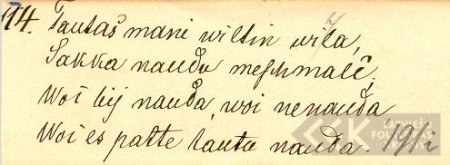 14. Tautas mani wiltin wiļa,
Sakka naudu meschmalē;
Woi bij nauda, woi nenauda
Woi es patte tautu nauda. 191/2